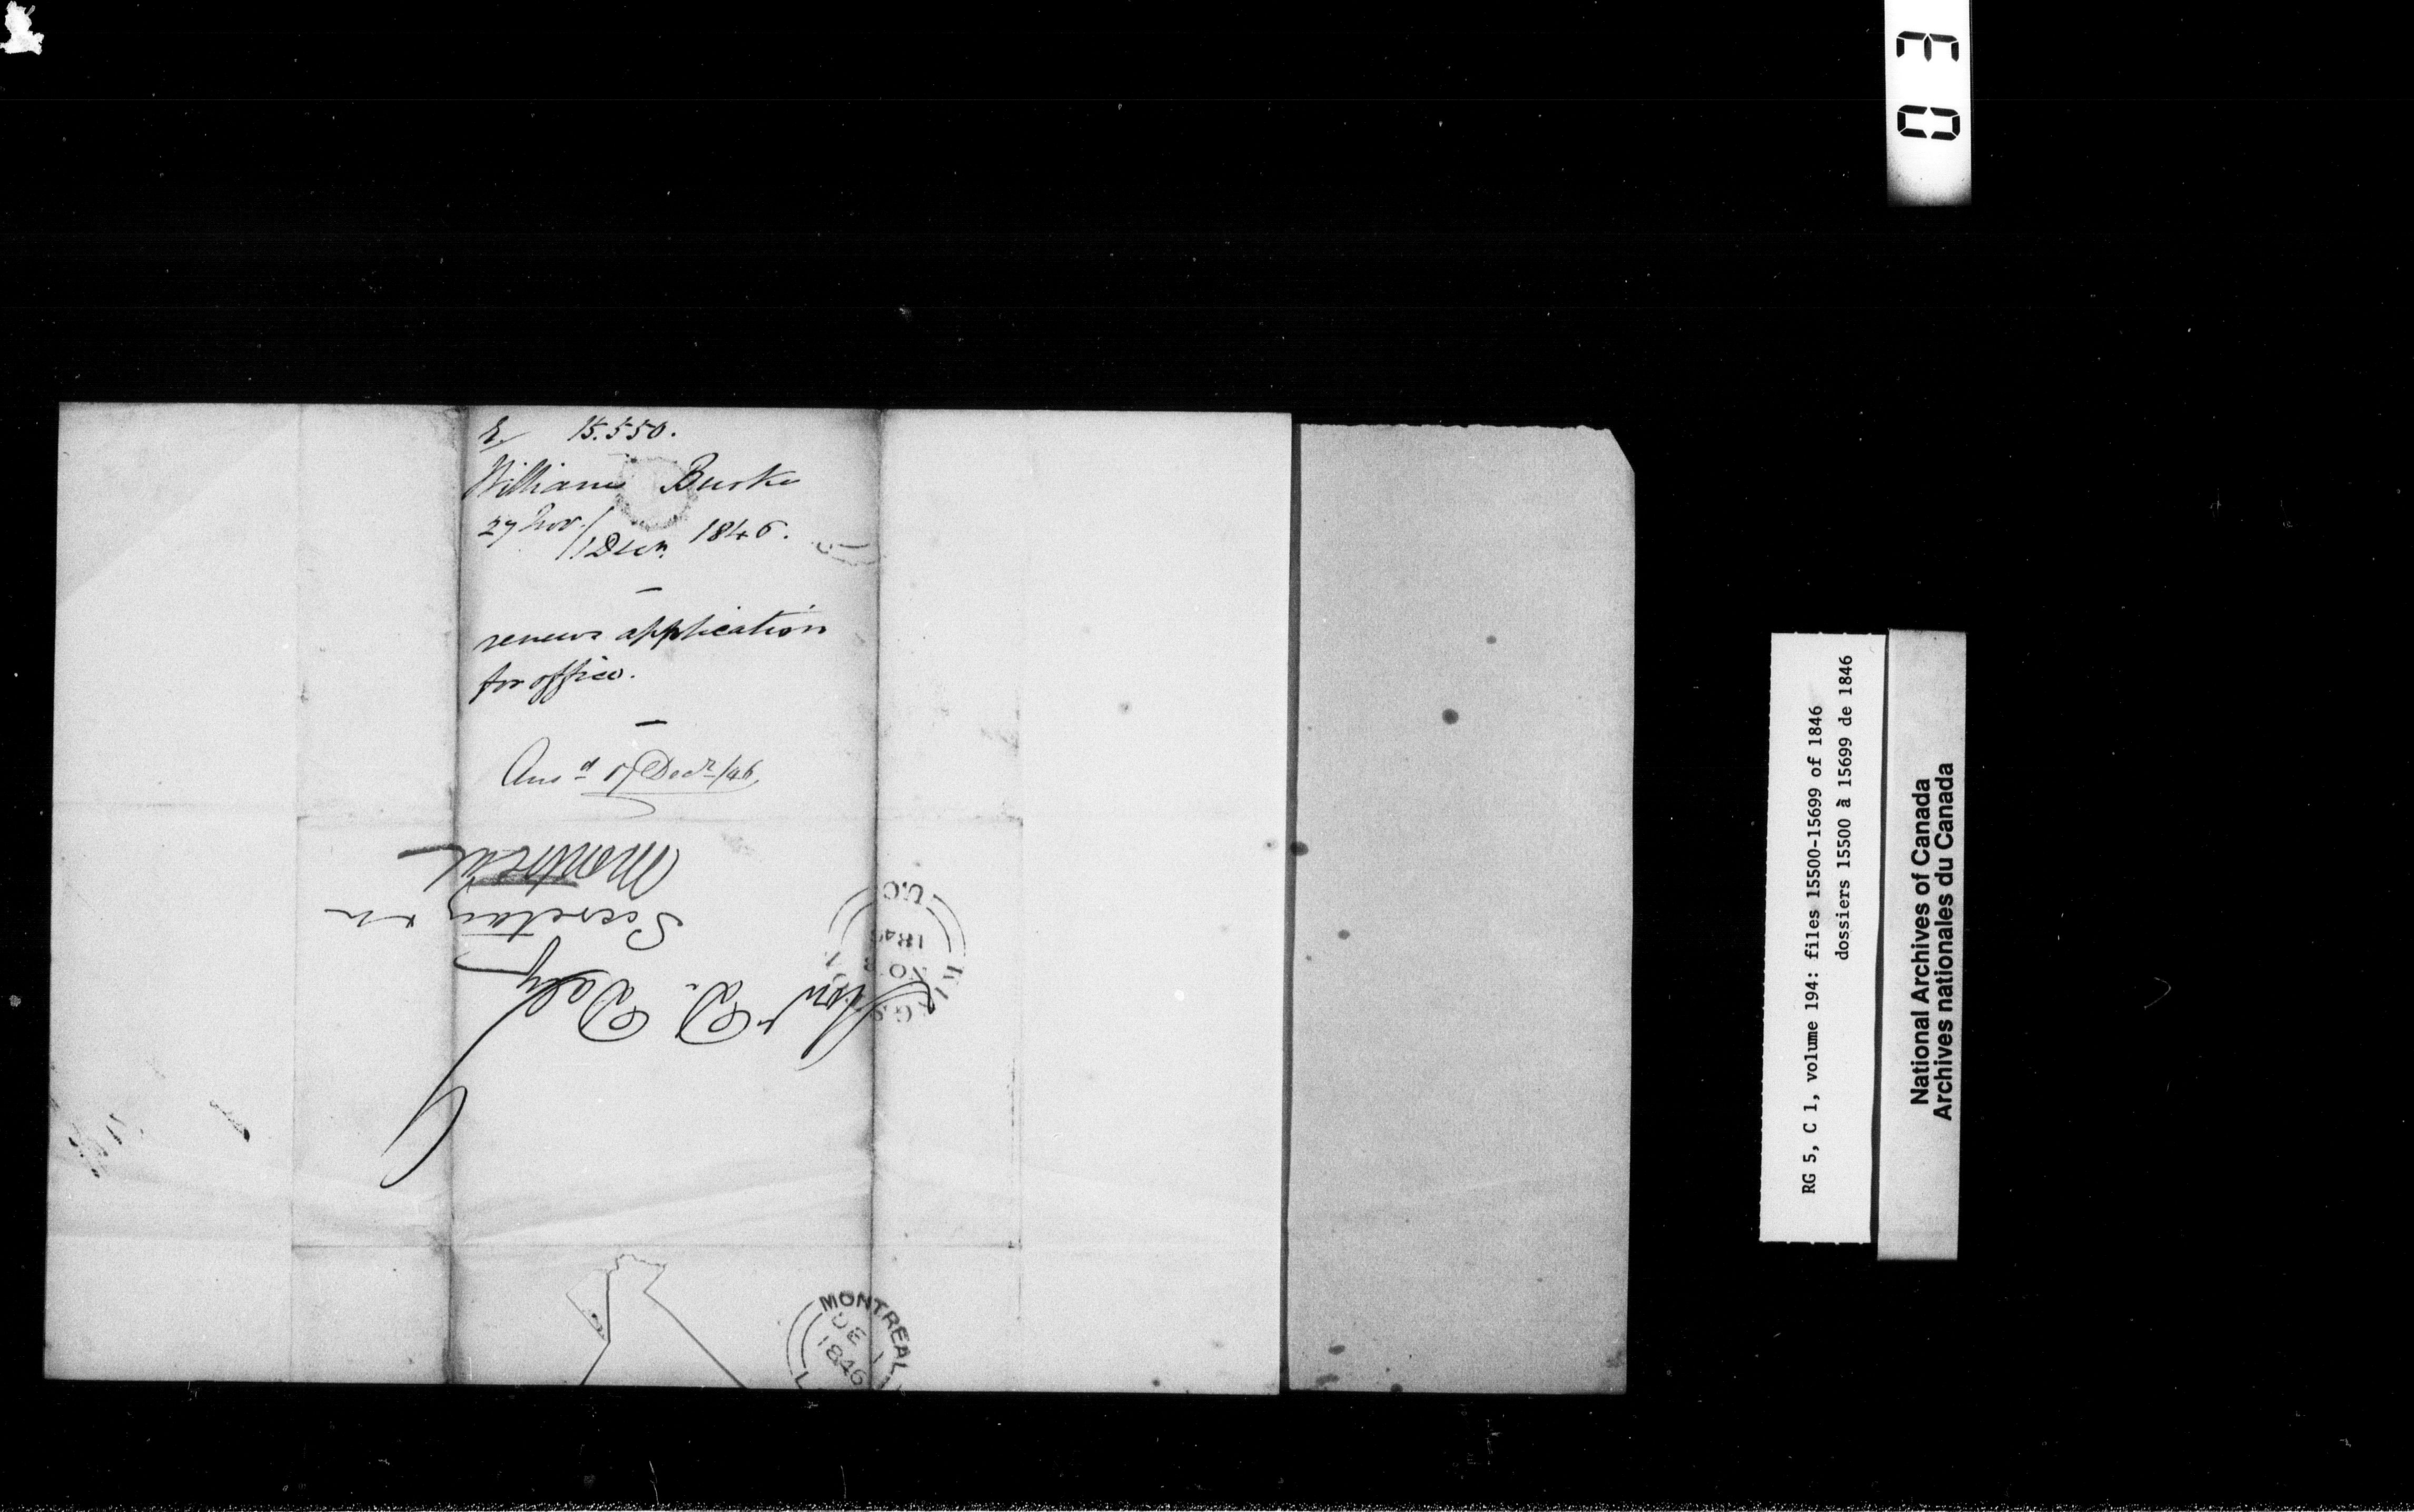 15.550.
William Burke
27 Nov./
1 Decr. 1846.
—
renews application
for office.
—
Ansd 17 Decr/46,
Honl D. Daly
Secretary
Montreal
KINGSTON
NO
1846
U.C.
MONTREAL
DE 1
1846
L
03
RG 5, C 1, volume 194: files 15500-15699 of 1846
dossiers 15500 à 15699 de 1846
National Archives of Canada
Archives nationales du Canada